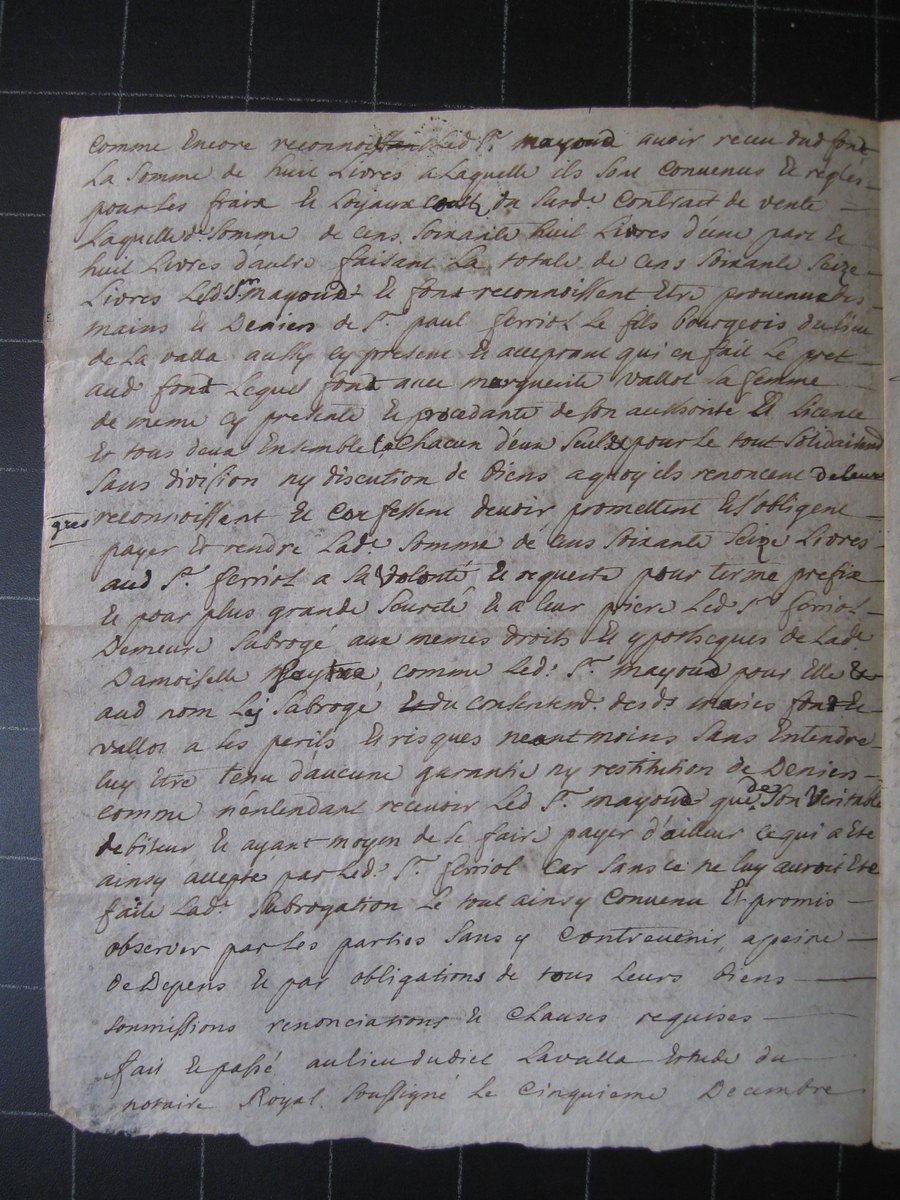 Comme Encore reconnoissent Led Sr. mayoud avoir receu dud font
La Somme de huit Livres a Laquelle ils sont convenus Et reglés -
pour Les fraix Et Loyaux couts du Susd. Contract de vente -
Laquelle de. Somme de cens Soixante huit Livres d'eune part Et
huit Livres d'autre faisant La totale de cens Soixante Seize -
Livres Led. Sr. mayoud Et font reconnoissent Etre provenue des
mains Et Deniers de Sr. paul ferriol Le fils bourgeois du lieu
de La valla aussy cy present Et acceptant qui en fait Le pret -
aud font Lequel font avec marguerite vallot sa femme -
de meme cy presente Et procedante de son authorité Et Licence
Et tous deux Ensemble Et Chacun d'eux Seul pour Le tout Solidairemt
Sans division ny discution de biens a quoy ils renoncent de leurs
grés reconnoissent Et confessent devoir promettent Et s'obligent -
payer Et rendre Lade. Somme de cens soixante Seize Livres -
aud Sr. ferriol a sa volonté Et requeste pour terme prefix
Et pour plus grande Seureté Et a leur priere Led. Sr ferriol -
Demeure Subrogé aux memes droits Et ypotheques de Lade.
Damoiselle comme Led. Sr. mayoud pour Elle &
aud nom Ley Subroge du consentemt. desds maries font Et
vallot a ses perils Et risques neantmoins Sans Entendre
luy Etre tenu d'aucune garantie ny restitution de Deniers -
comme n'entendant recevoir Led Sr. mayoud que de Son Veritable
debiteur Et ayant moyen de se faire payer d'ailleur ce qui a Ete
ainsy accepté par Led. Sr. ferriol car sans ce ne luy auroit Ete
faite Lade. Subrogation Le tout ainsy convenu Et promis -
observer par Les parties Sans y Contrevenir a peine -
de Depens Et par obligations de tous Leurs biens -
Soumissions renonciations Et Clauses requises -
fait Et passé au lieu dudict Lavalla Estude du
notaire Royal Soussigné Le Cinquieme Decembre